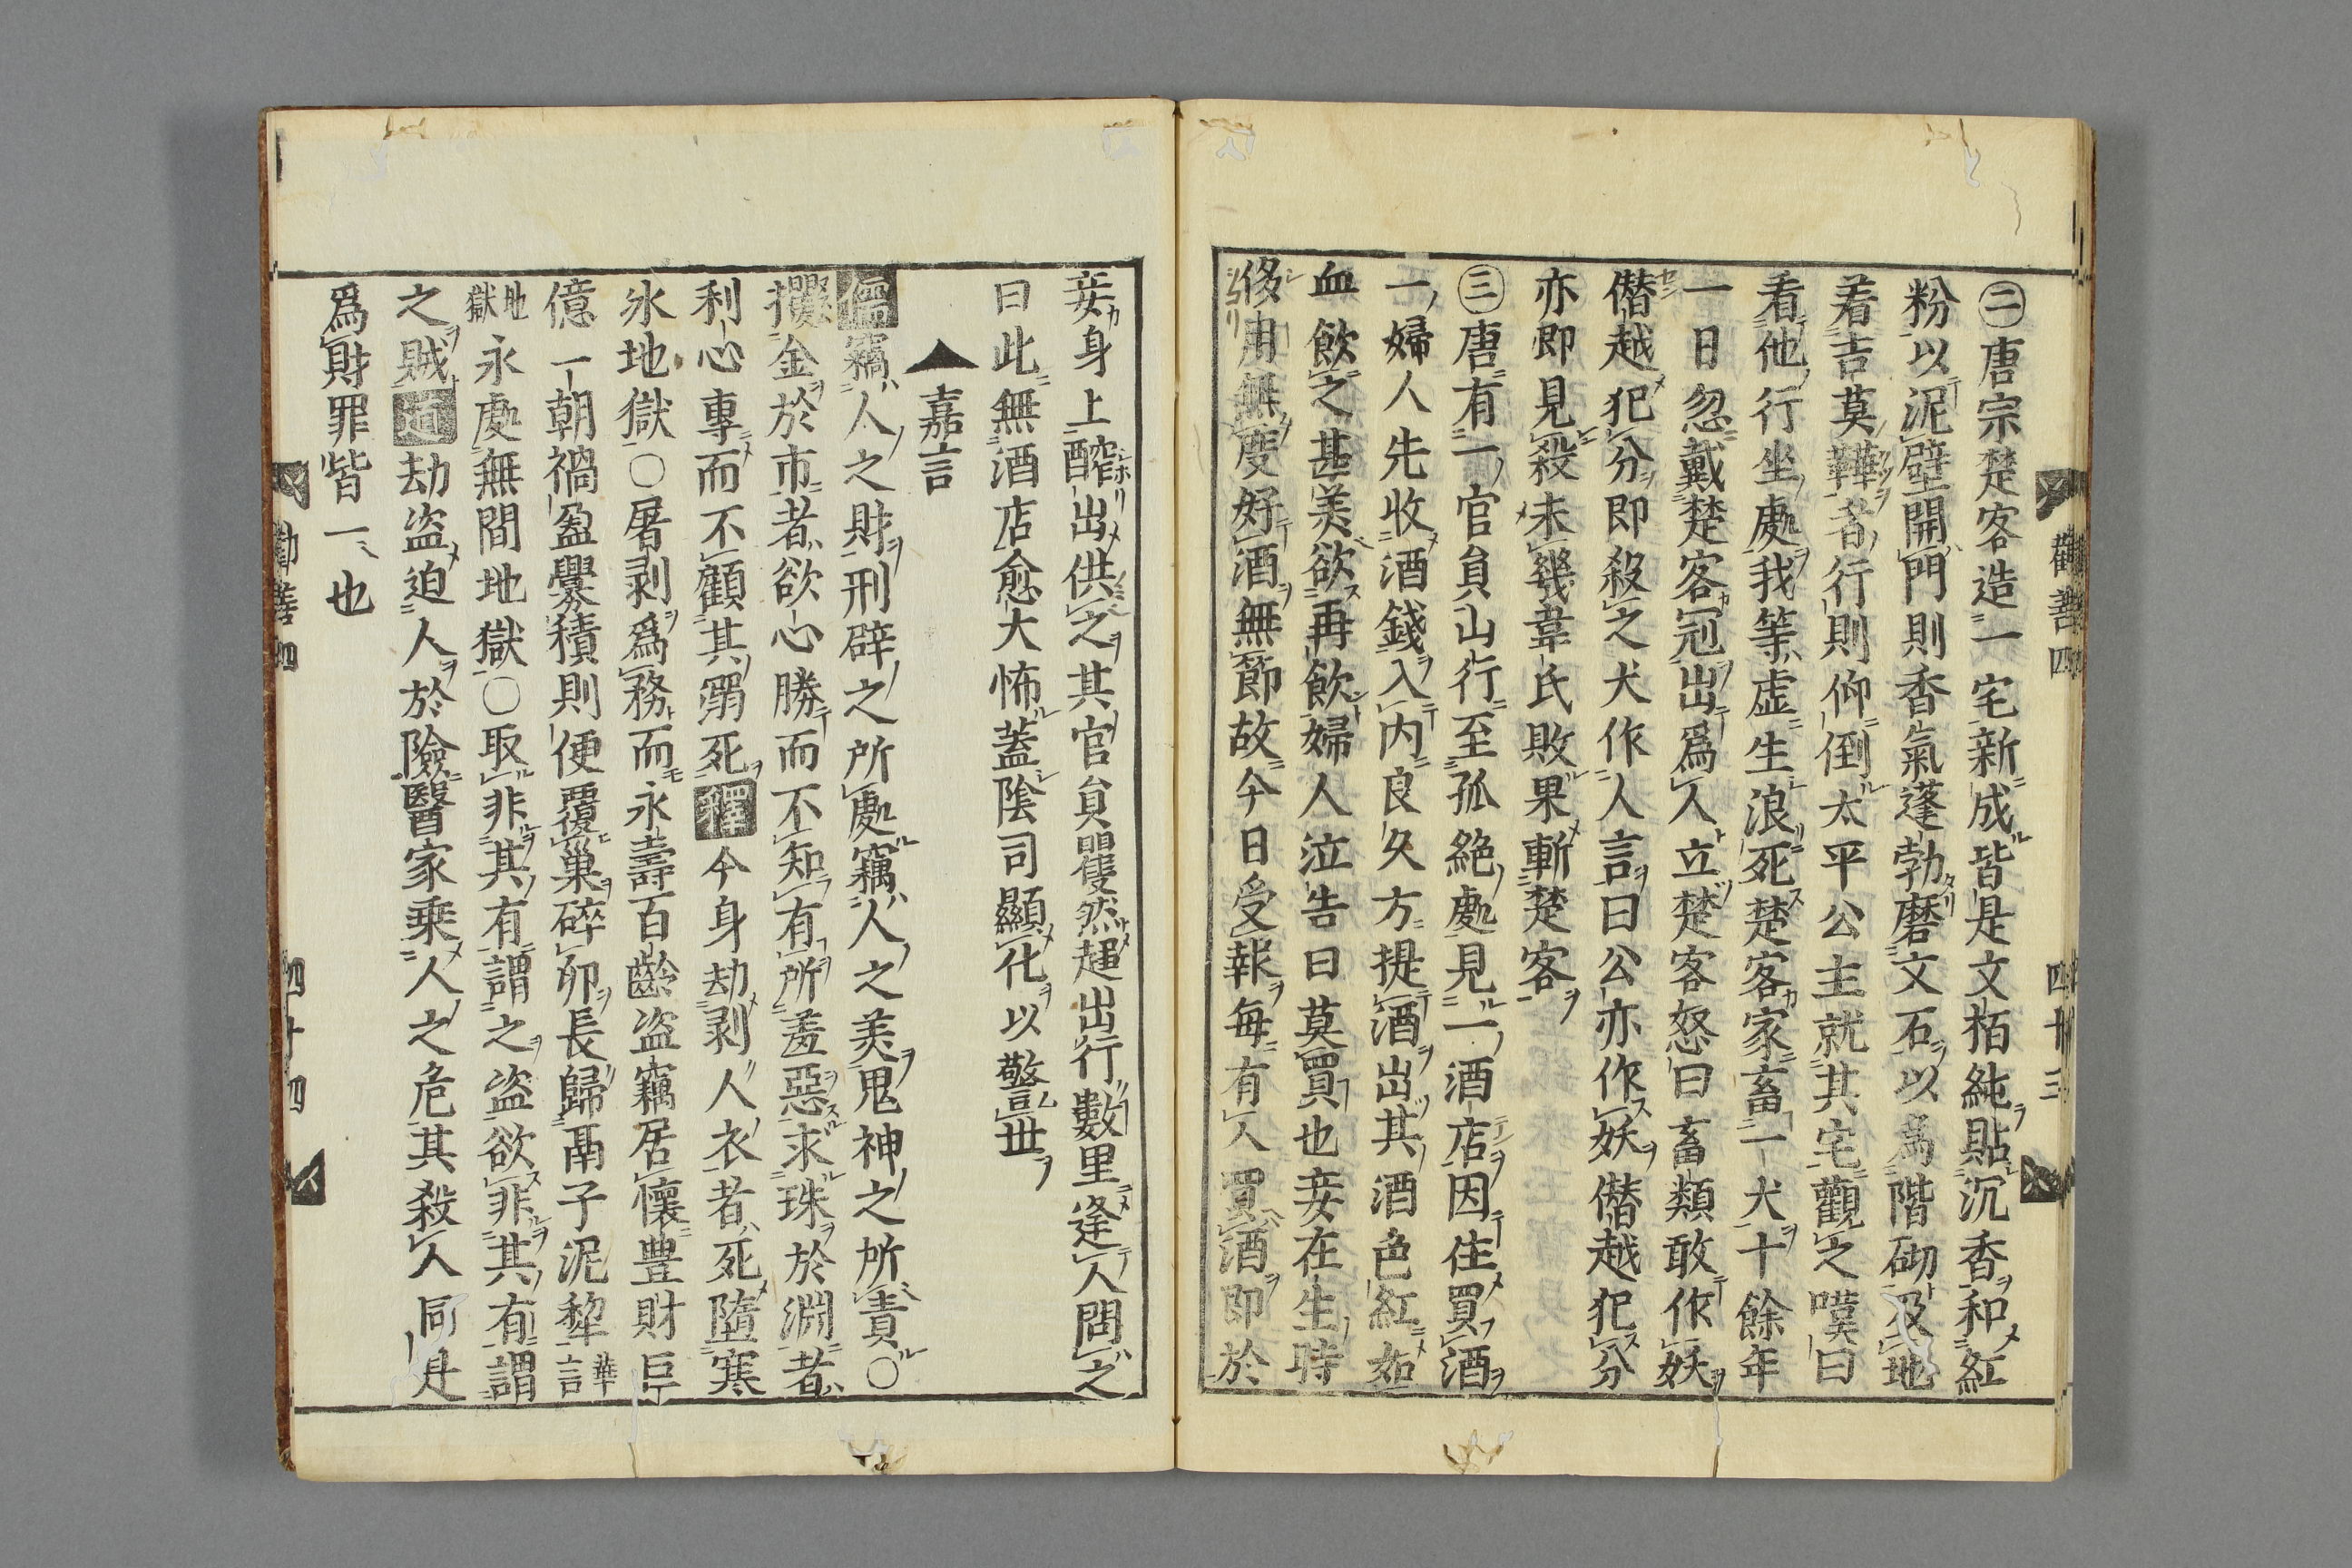 ㊁唐宗楚客造一宅新成皆是文栢純貼沉香和紅
粉以泥壁開門則香氣蓬勃磨文石以為階砌及地
着吉莫鞾者行則仰倒太平公主就其宅觀之嘆曰
看他行坐處我等虛生浪死楚客家畜一犬十餘年
一日忽戴楚客冠出爲人立楚客怒曰畜類敢作妖
僣越犯分即殺之犬作人言曰公亦作妖僣越犯分
亦即見殺未幾韋氏敗果斬楚客
㊂唐有一官員山行至孤絶處見一酒店因住買酒
一婦人先收酒錢入内良久方提酒出其酒色紅如
血飲之甚美欲再飲婦人泣告曰莫買也妾在生時
侈用無度好酒無節故今日受報每有人買酒即於
勸善四
四十三
妾身上醡出供之其官員矍然趨出行數里逢人問之
曰此無酒店愈大怖蓋陰司顯化以警世
▲嘉言
儒竊人之財刑辟之所處竊人之美鬼神之所責○
攫金於市者欲心勝而不知有所羞惡求珠於淵者
利心專而不顧其溺死釋今身劫剥人衣者死墮寒
氷地獄○屠剥爲務而永壽百齡盗竊居懷豊財巨
億一朝禍盈釁積則便覆巢碎卵長歸鬲子泥犂華言
地獄永處無間地獄○取非其有謂之盗欲非其有謂
之賊道劫盗迫人於險醫家乗人之危其殺人同是
爲財罪皆一也
勸善四
四十四